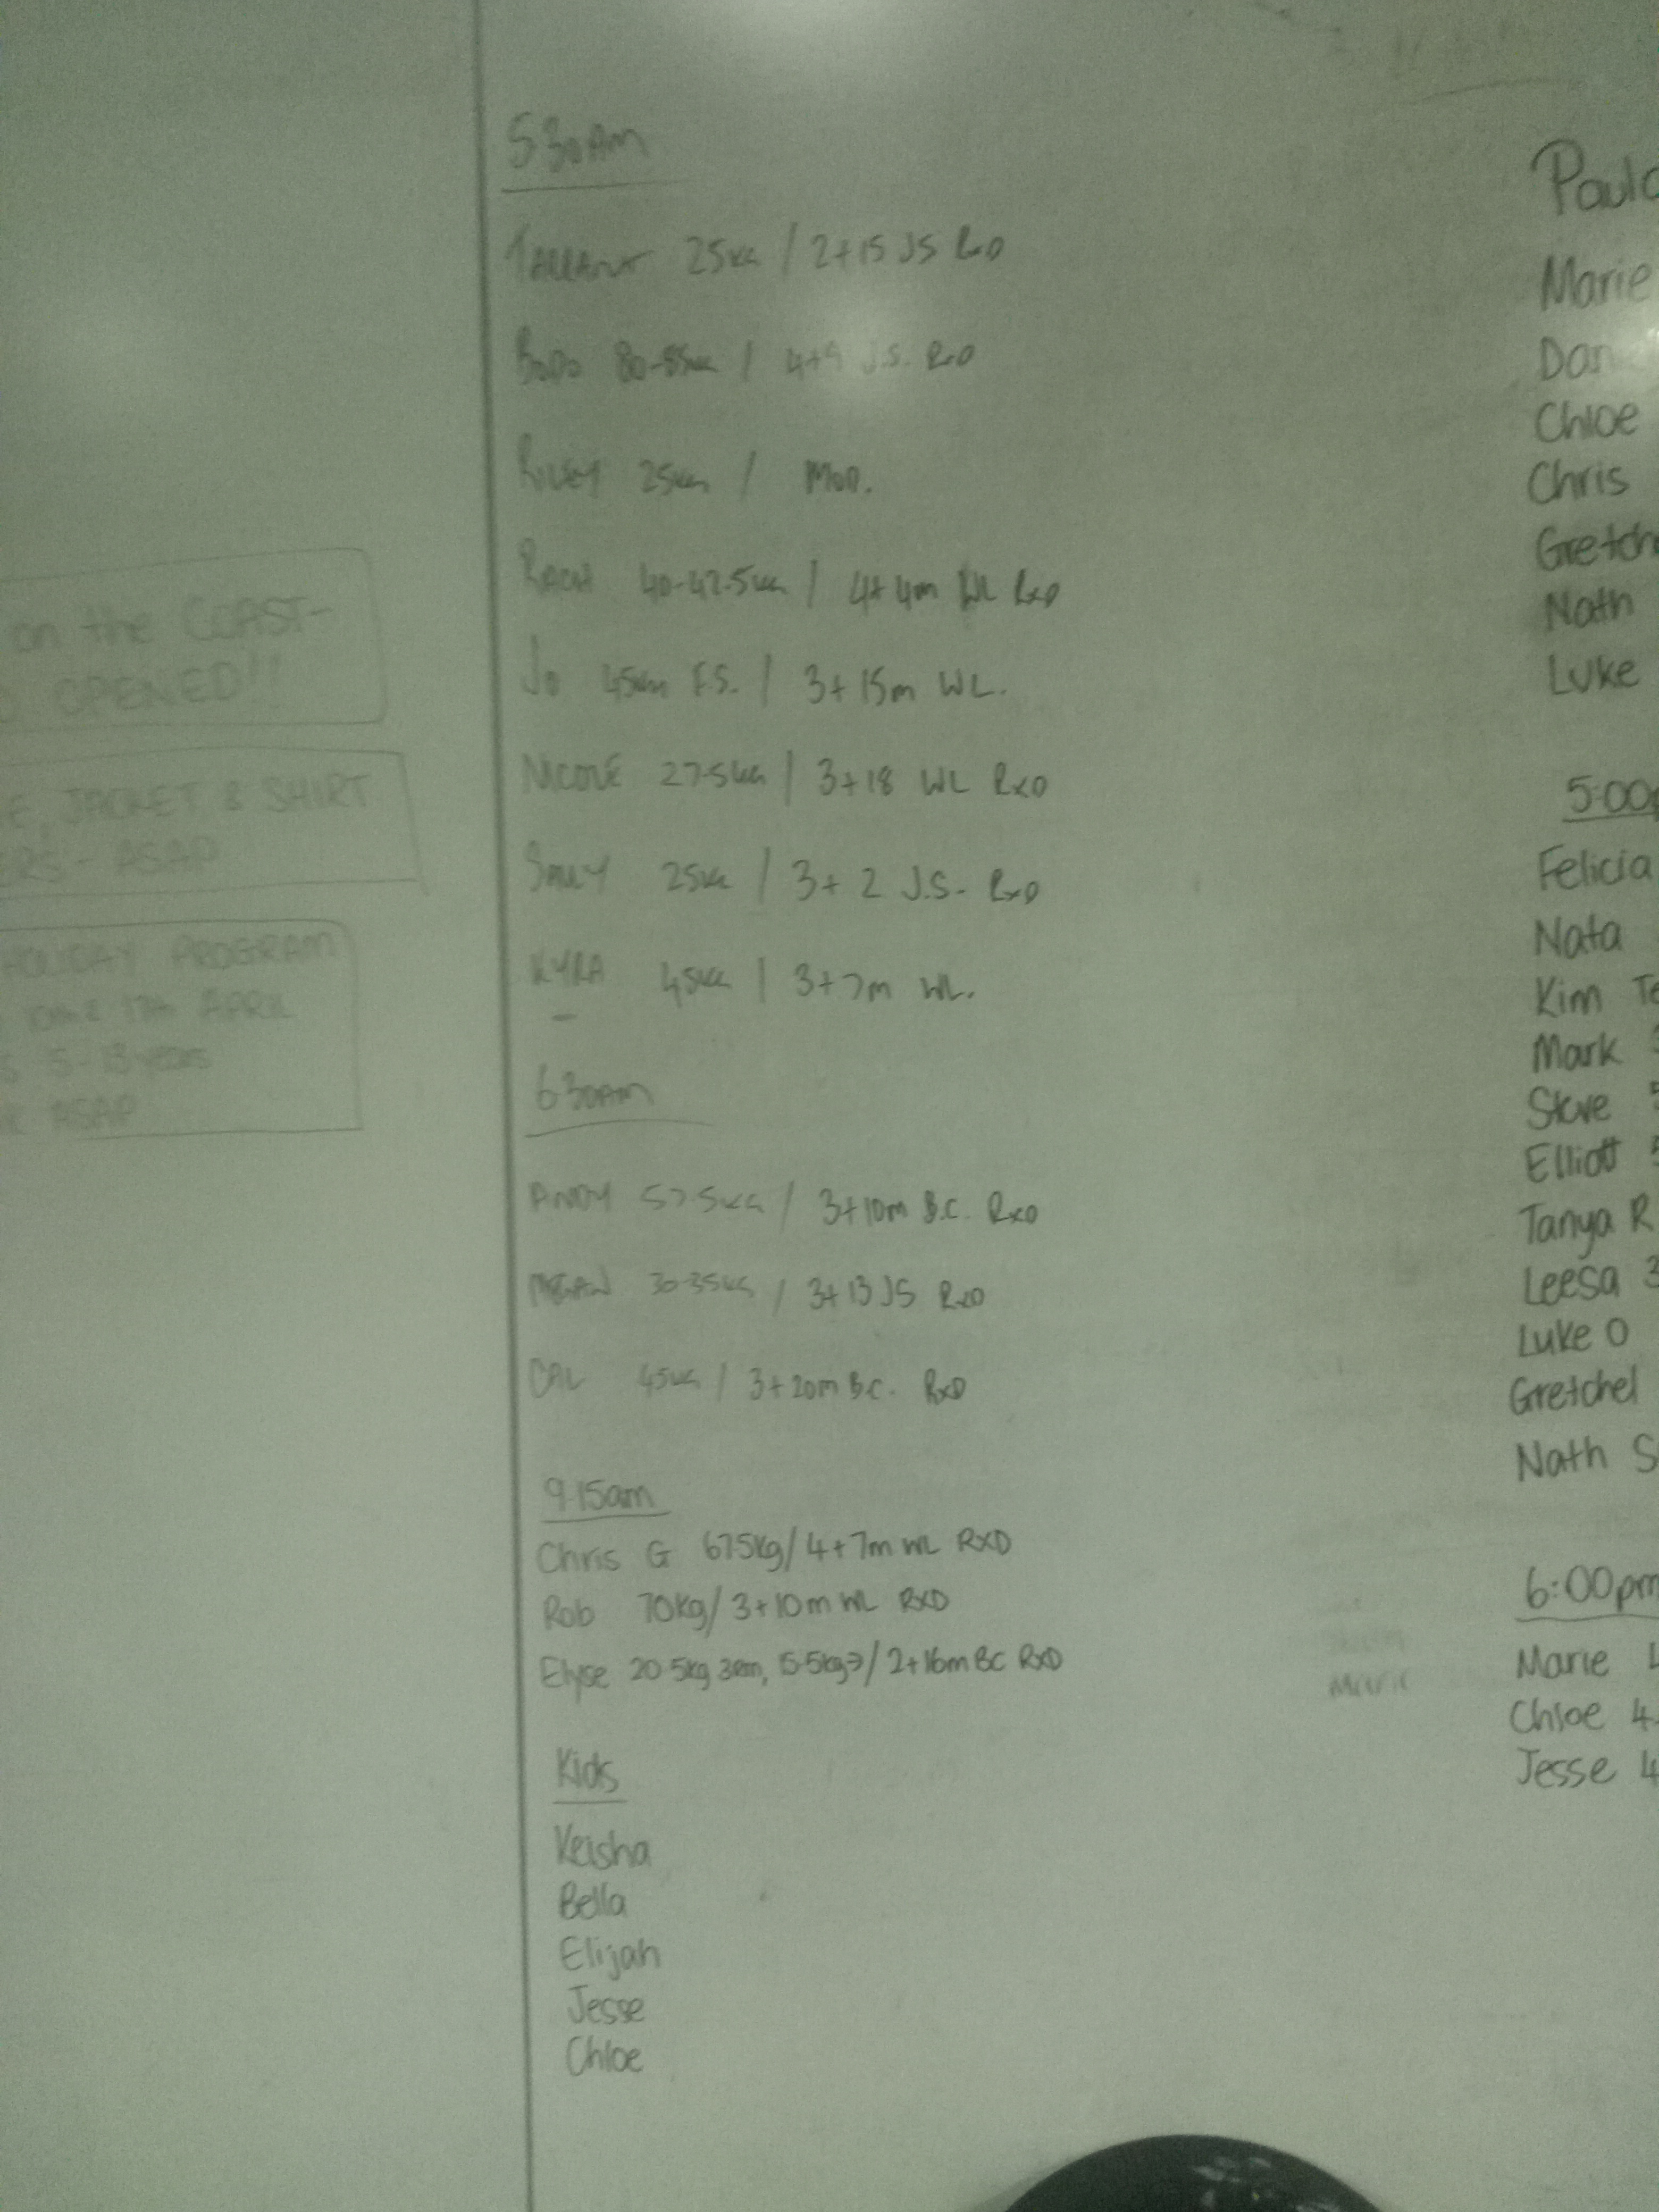 on the COAST-
OPENED!!
JACKET & SHIRT
ERS - ASAP
HOLIDAY PROGRAM
17th APRIL
5-13 years
ASAP
5:30AM
25KG / 2+15 JS RxD
80-85KG / 4+9 J.S. RxD
RILEY 25KG / MOD.
RACH 40-42.5KG / 4+4m WL RxD
JO 45KG F.S. / 3+15m WL.
NICOLE 27.5KG / 3+18 WL RxD
SALLY 25KG / 3+2 J.S. RxD
KYRA 45KG / 3+7m WL.
6:30AM
ANDY 57.5KG / 3+10m B.C. RxD
MEGAN 30-35KG / 3+13 JS RxD
CAL 45KG / 3+20m B.C. RxD
9:15am
Chris G 67.5kg / 4+7m WL RXD
Rob 70kg / 3+10m WL RXD
Elyse 20.5kg 3Rm, 15.5kg→ / 2+16m BC RXD
Kids
Keisha
Bella
Elijah
Jesse
Chloe
Marie
Paul
Marie
Dan
Chloe
Chris
Gretch
Nath
Luke
5:00p
Felicia
Nata
Kim Te
Mark 3
Steve 5
Elliott 5
Tanya R
Leesa 3
Luke O
Gretchel
Nath S
6:00pm
Marie 4
Chloe 4
Jesse 4